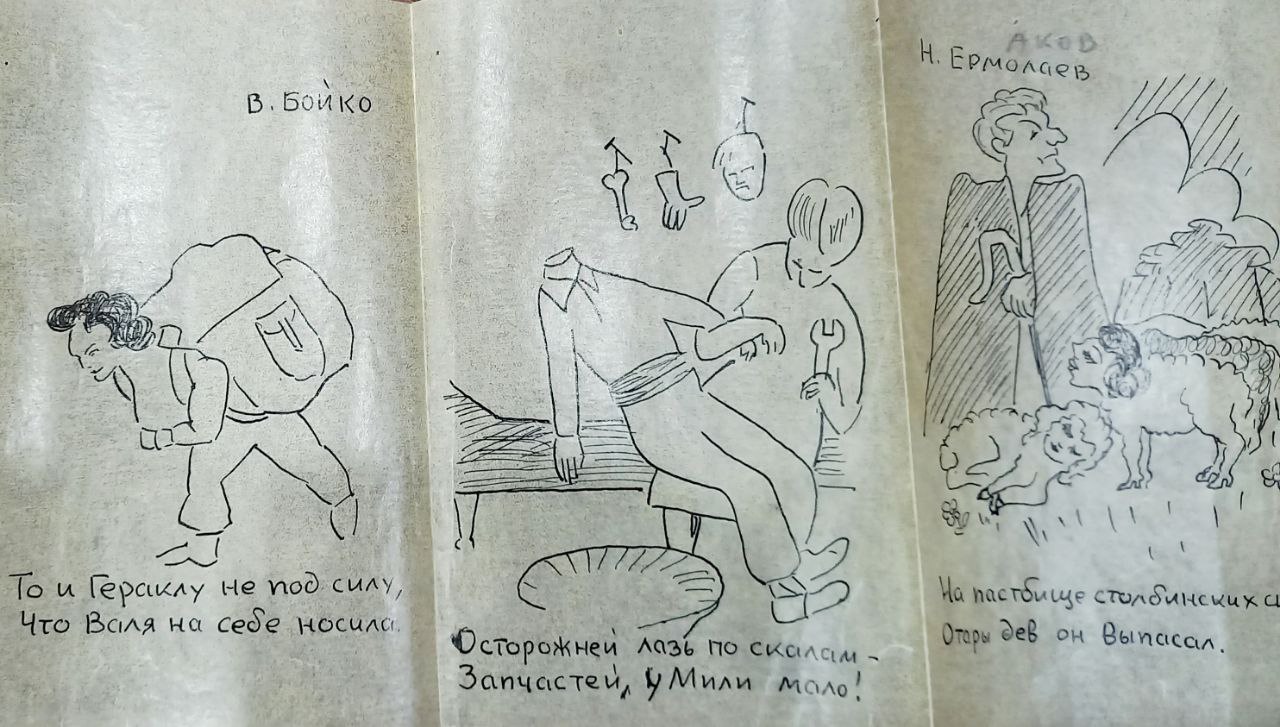 В. БОЙКО
То и Гераклу не под силу,
Что Валя на себе носила.
Осторожней лазь по скалам –
Запчастей, у Мили мало!
АКОВ
Н. ЕРМОЛАЕВ
На пастбище столбинских
Отары дев он выпасал.